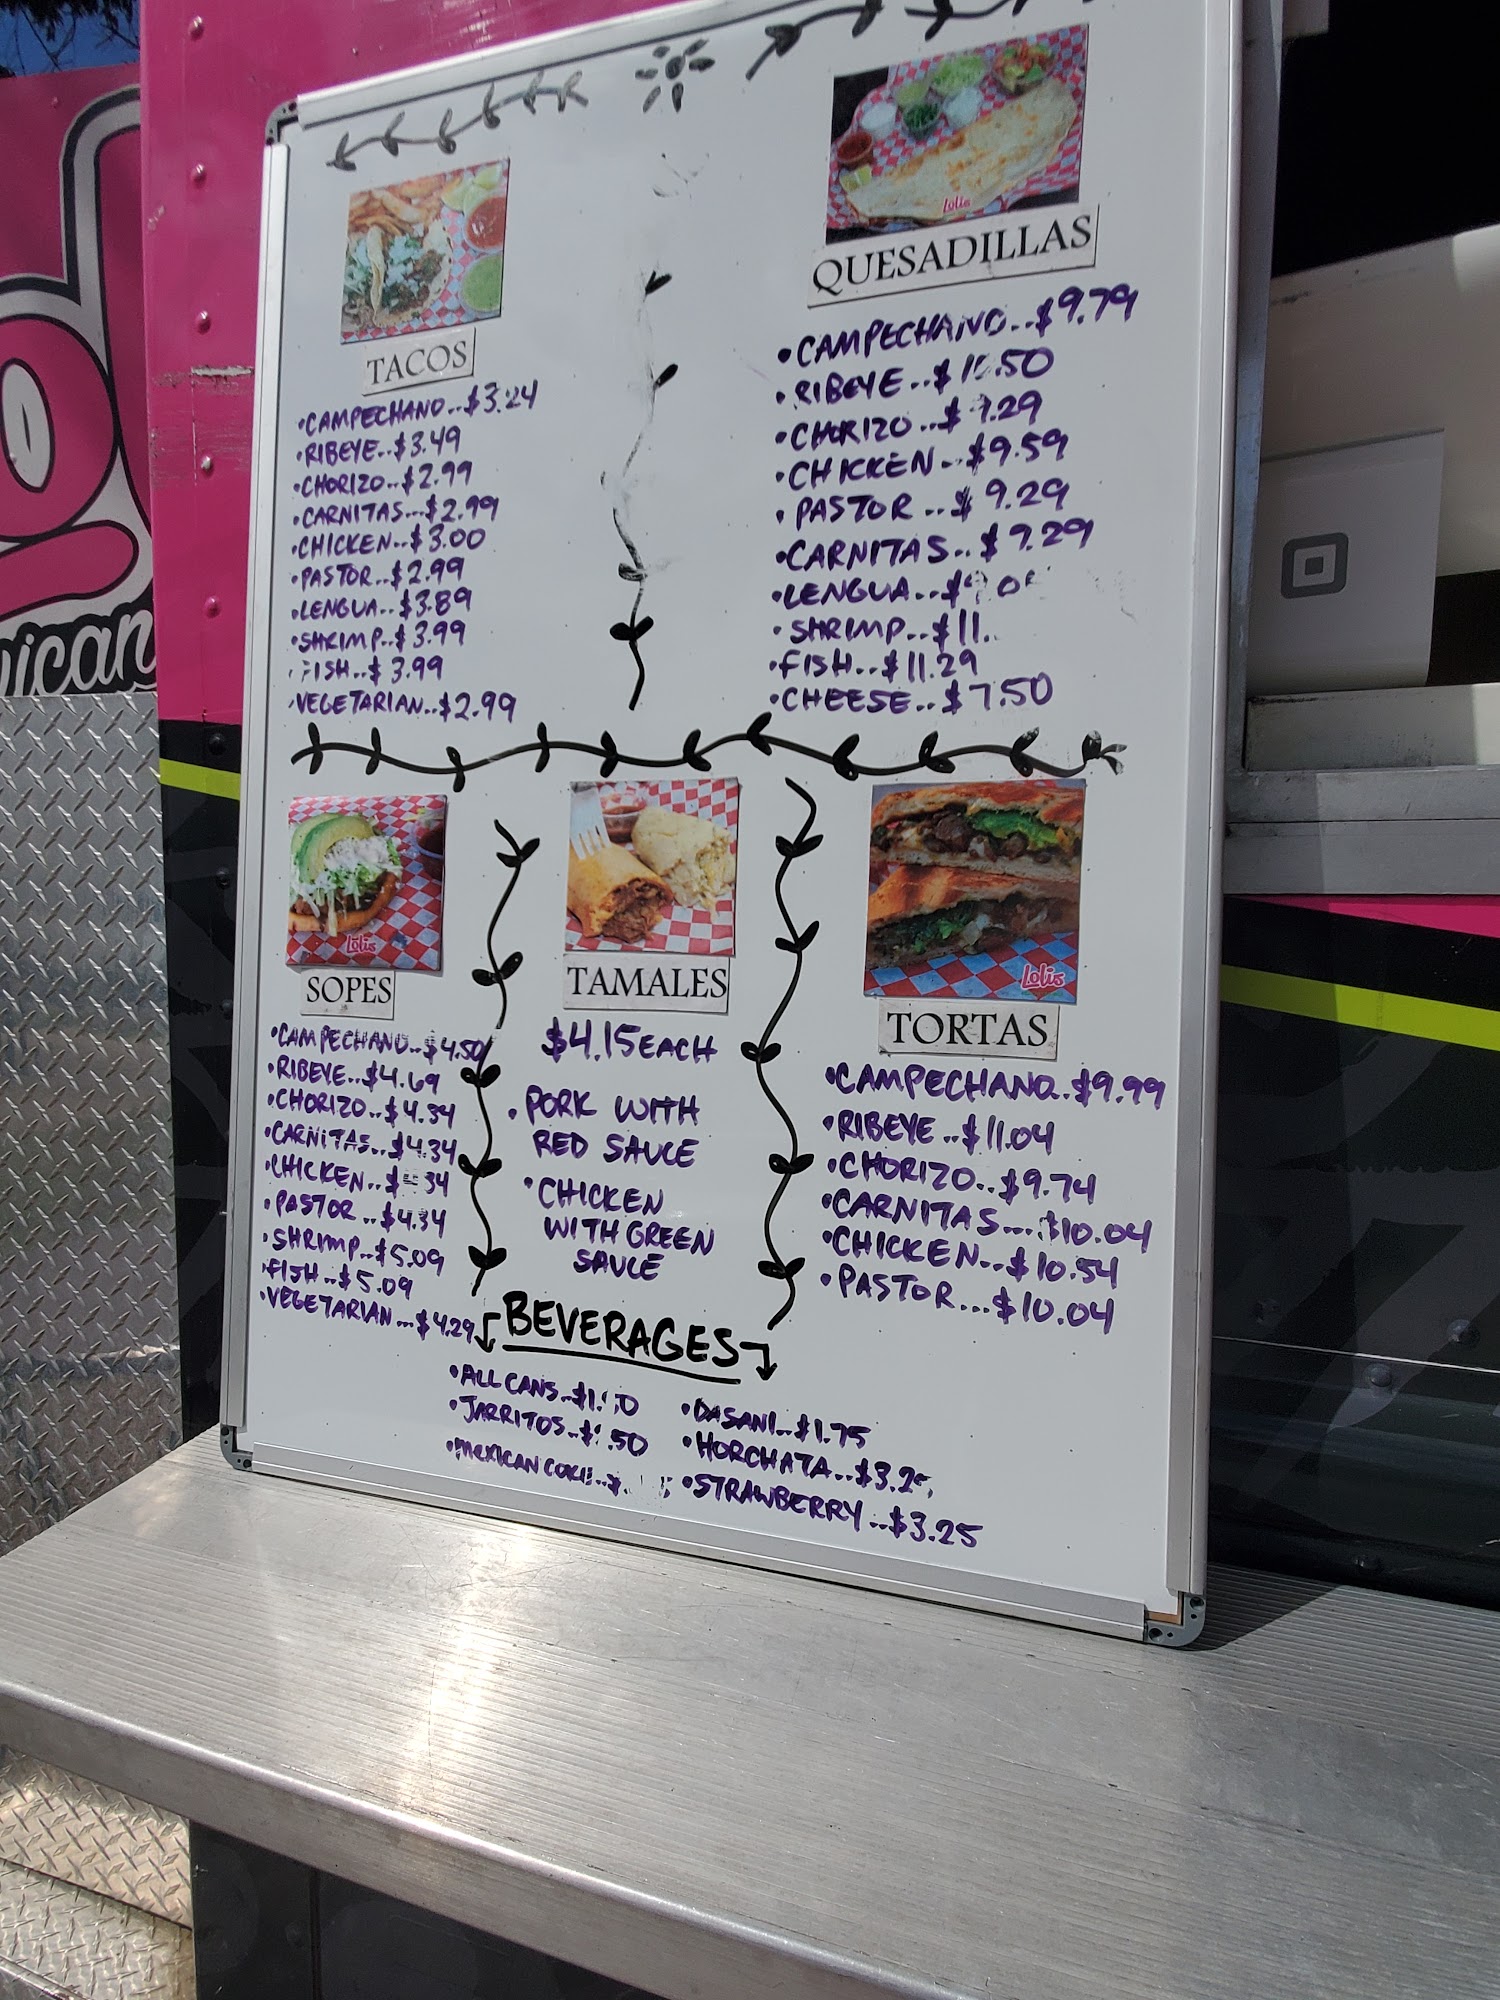 TACOS
•CAMPECHANO..$3.24
•RIBEYE..$3.49
•CHORIZO..$2.99
•CARNITAS..$2.99
•CHICKEN..$3.00
•PASTOR..$2.99
•LENGUA..$3.89
•SHRIMP..$3.99
•FISH..$3.99
•VEGETARIAN..$2.99
Lolis
QUESADILLAS
•CAMPECHANO..$9.79
•RIBEYE..
•CHORIZO..
•CHICKEN..$9.59
•PASTOR..$9.29
•CARNITAS..$9.29
•LENGUA..
•SHRIMP..
•FISH..$11.29
•CHEESE..$7.50
Lolis
SOPES
•CAMPECHANO..$4.50
•RIBEYE..$4.69
•CHORIZO..$4.34
•CARNITAS..$4.34
•CHICKEN..
•PASTOR..$4.34
•SHRIMP..$5.09
•FISH..$5.09
•VEGETARIAN...$4.29
TAMALES
$4.15 EACH
•PORK WITH
RED SAUCE
•CHICKEN
WITH GREEN
SAUCE
Lolis
TORTAS
•CAMPECHANO..$9.99
•RIBEYE..$11.04
•CHORIZO..$9.74
•CARNITAS...$10.04
•CHICKEN..$10.54
•PASTOR...$10.04
BEVERAGES
•ALL CANS..
•JARRITOS..
•MEXICAN COKE..
•DASANI..$1.75
•HORCHATA..
•STRAWBERRY..$3.25